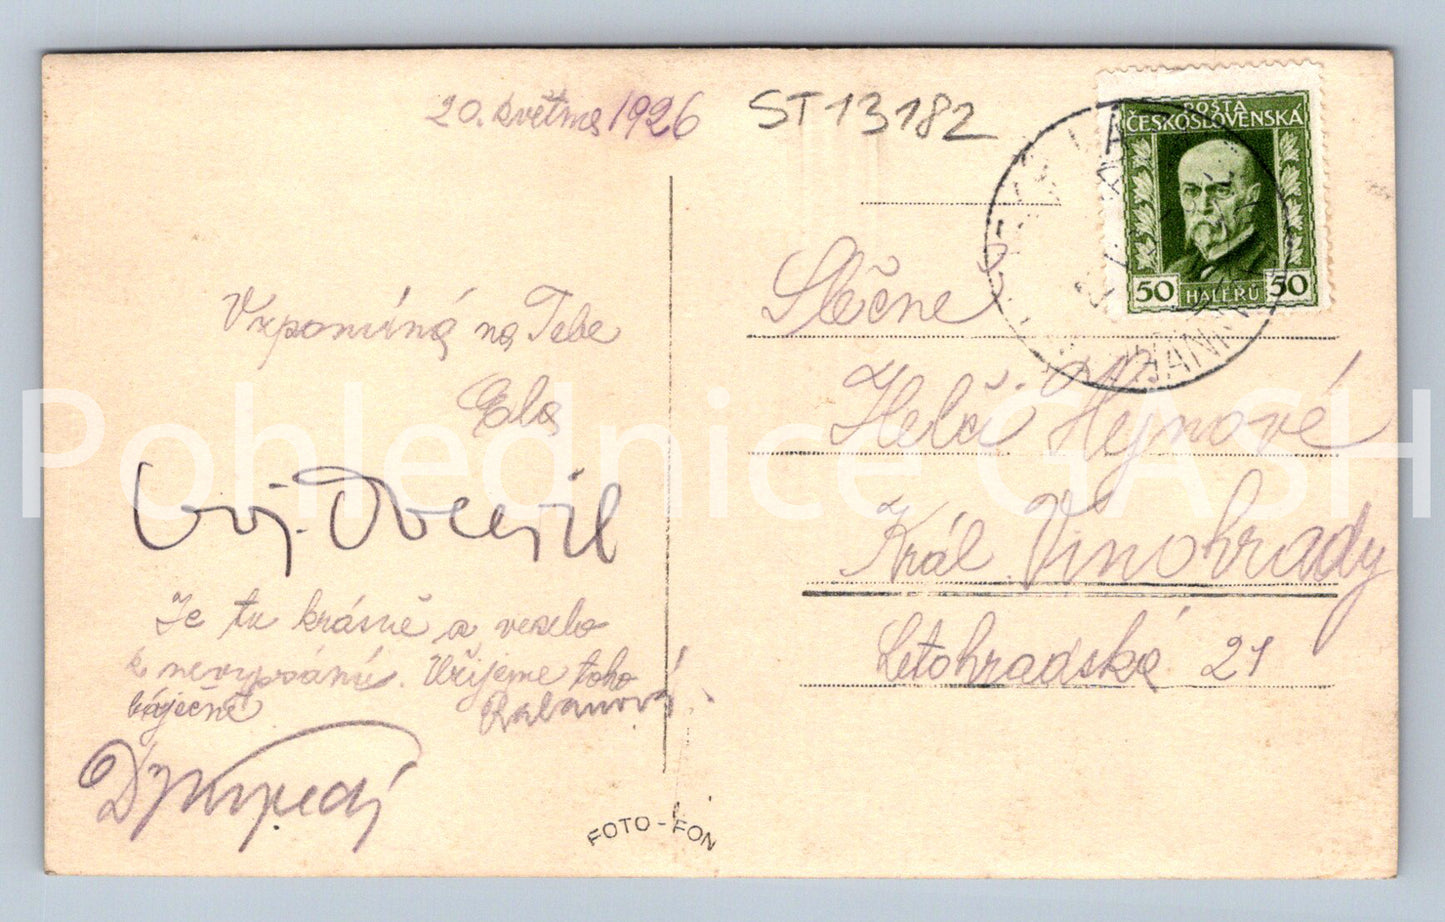 20. května 1926
ST 13182
POŠTA
ČESKOSLOVENSKÁ
50 HALÉŘŮ 50
Vzpomíná na Tebe
Ela
Je tu krásně a veselo
k nevypsání. Užijeme toho
báječně
Rabanová
Slečně
Helči Hejnové
Král. Vinohrady
Letohradská 21
FOTO-FON
Pohlednice GASH